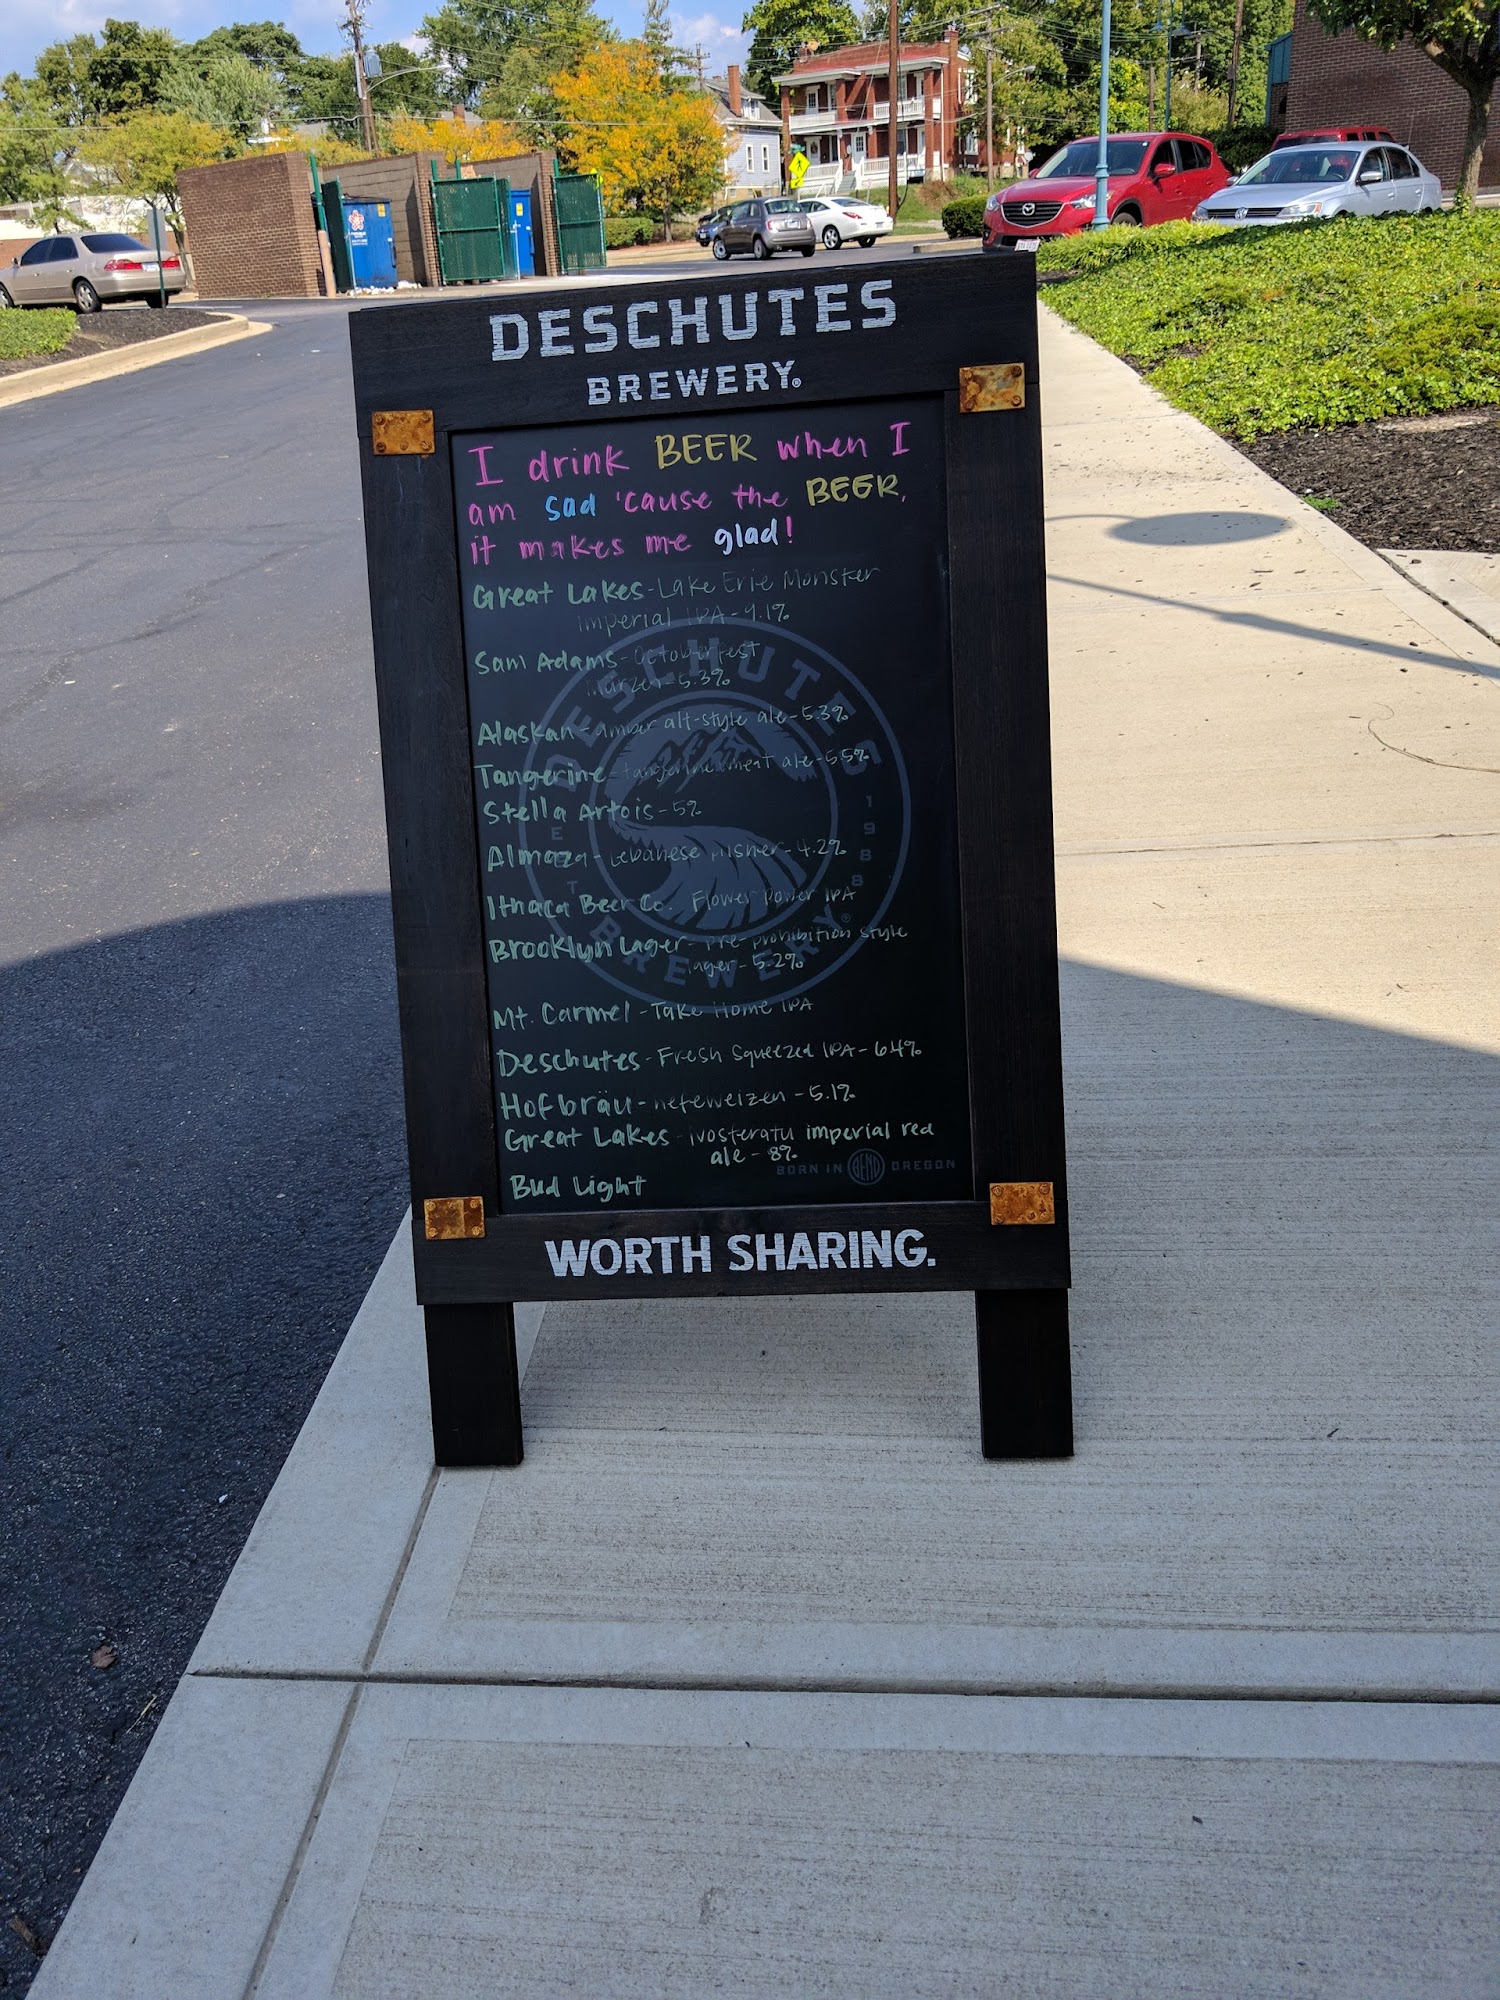 DESCHUTES
BREWERY®
I drink BEER when I
am sad 'cause the BEER,
it makes me glad!
Great Lakes - Lake Erie Monster
imperial IPA - 9.1%
Sam Adams - Octoberfest
Marzen - 5.3%
Alaskan - amber alt-style ale - 5.3%
Tangerine - tangerine wheat ale - 5.5%
Stella Artois - 5%
Almaza - Lebanese pilsner - 4.2%
Ithaca Beer Co. Flower Power IPA
Brooklyn Lager - pre-prohibition style
lager - 5.2%
Mt. Carmel - Take Home IPA
Deschutes - Fresh Squeezed IPA - 6.4%
Hofbräu - hefeweizen - 5.1%
Great Lakes - Nosferatu imperial red
ale - 8%
Bud Light
DESCHUTES
BREWERY®
1988
BORN IN BEND OREGON
WORTH SHARING.